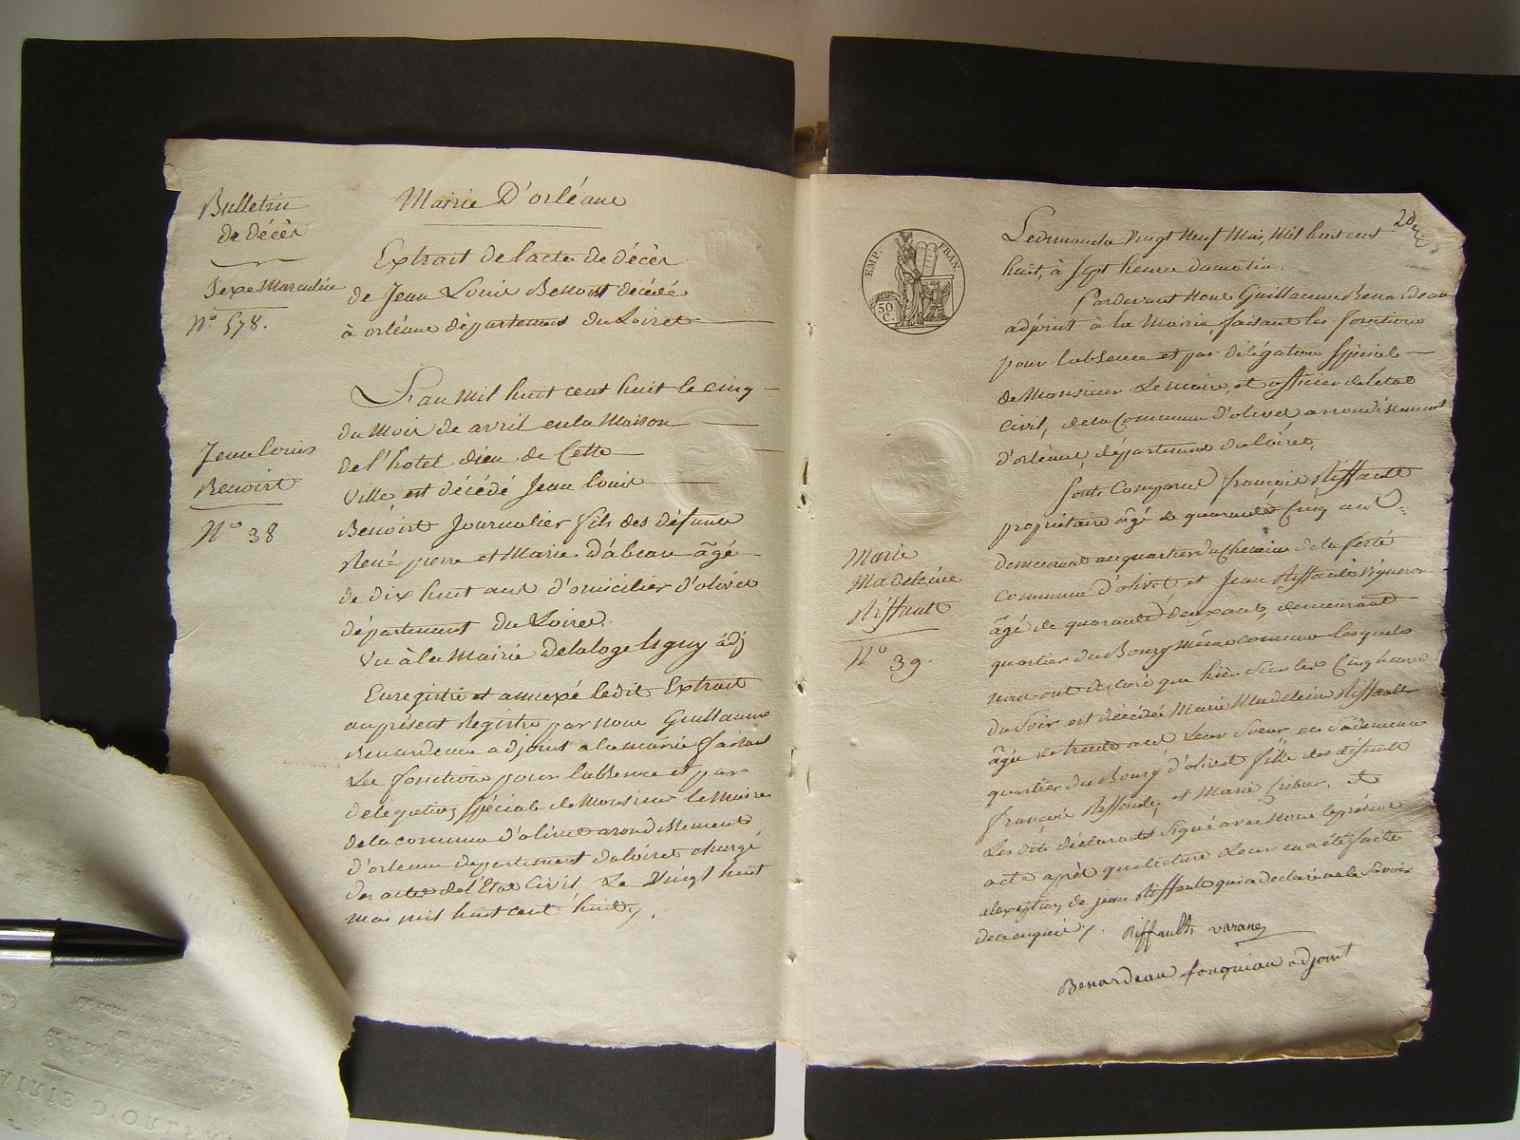 Bulletin
de décès
Sexe Masculin
N° 578.
Mairie D'orléans
Extrait de l'acte de décès
de Jean Louis Benoist décédé
à orléans département du Loiret
L'an mil huit cent huit le cinq
du mois de avril en la Maison
de l'hotel dieu de Cette
Ville est décédé Jean Louis
Benoist Journalier fils des défunts
René pierre et Marie d'abeau âgé
de dix huit ans d'omicilier d'olivet
département du Loiret.
Vu à la Mairie Delaloge ligny adj
Jean louis
Benoist
N° 38
Enregistré et annexé ledit Extrait
au présent Registre par nous Guillaume
Benardeau adjoint a la mairie faisant
Les fonctions pour l'absence et par
délégation spécial de Monsieur le Maire
de la commune d'olivet arondissement
d'orleans departement du loiret chargé
des actes de l'Etat Civil Le Vingt huit
mai mil huit cent huit /.
EMP. FRAN.
50
C.
20
Le dimanche Vingt Neuf Mai, Mil huit cent
huit, à sept heures du matin.
Pardevant Nous Guillaume Benardeau
adjoint à la Mairie, faisant les fonctions
pour l'absence et par délégation spécial
de Monsieur Le maire, et officier de l'etat
Civil, de la Commune d'olivet arrondissement
d'orléans, département du loiret,
Sont Comparus françois Riffault
propriétaire âgé de quarante Cinq ans
demeurant au quartier du Chemin de la ferté
Commune d'olivet et Jean Riffault Vigneron
âgé de quarante deux ans, demeurant
quartier du Bourg même commune lesquels
nous ont déclaré que hier sur les Cinq heures
du Soir est décédée Marie Madeleine Riffault
âgée de trente ans Leur Soeur en sa demeure
quartier du Bourg d'olivet fille des défunts
françois Riffault, et Marie
Les dits déclarants Signé avec Nous le présent
acte après que lecture Leur en a été faite
a l'exeption de jean Riffault qui a declaré ne le Savoir
de ce enquis /. Riffault varane
Benardeau fouquiau adjoint
Marie
Madeleine
Riffault
N° 39.